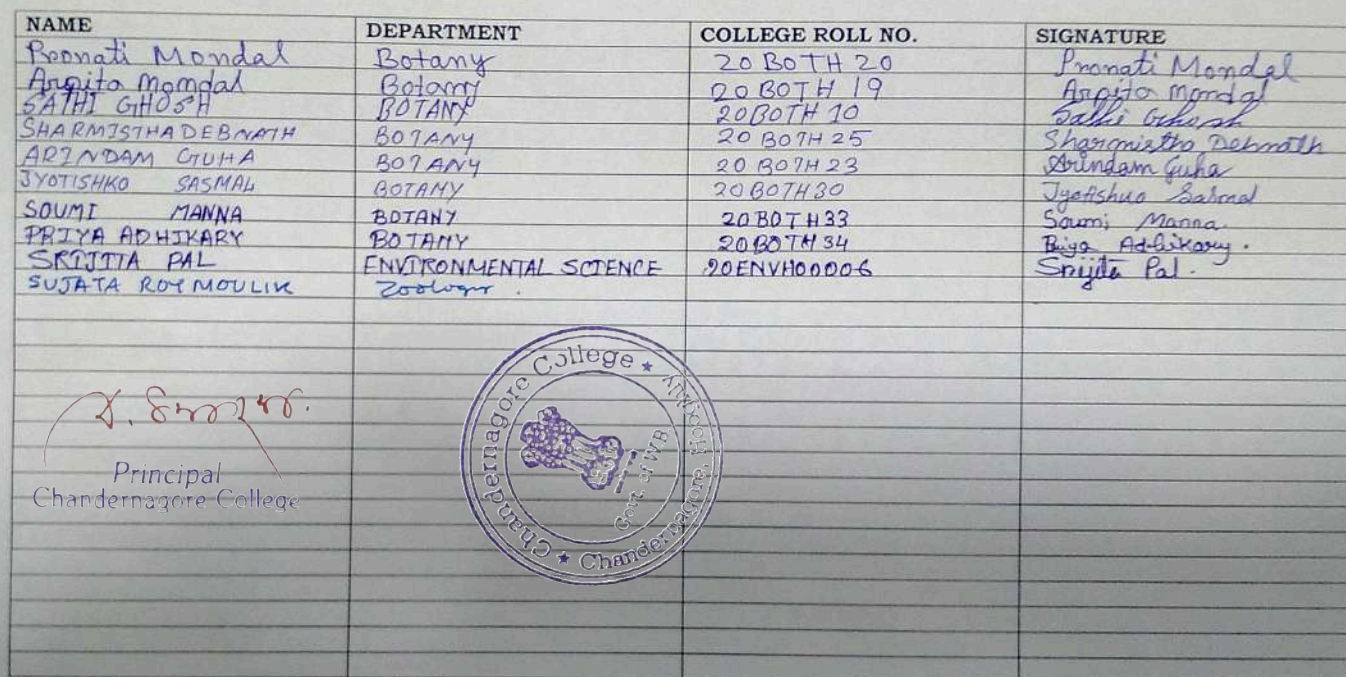 NAME DEPARTMENT COLLEGE ROLL NO. SIGNATURE
Pronati Mondal Botany 20 BOTH 20 Pronati Mondal
Arpita Mondal Botany 20 BOTH 19 Arpita Mondal
SATHI GHOSH BOTANY 20 BOTH 10 Sathi Ghosh
SHARMISTHA DEBNATH BOTANY 20 BOTH 25 Sharmistha Debnath
ARINDAM GUHA BOTANY 20 BOTH 23 Arindam Guha
JYOTISHKO SASMAL BOTANY 20 BOTH 30 Sasmal
SOUMI MANNA BOTANY 20 BOTH 33 Soumi Manna.
PRIYA ADHIKARY BOTANY 20 BOTH 34 Priya Adhikary.
SRIJITA PAL ENVIRONMENTAL SCIENCE 20ENVH00006 Srijita Pal.
SUJATA ROY MOULIK Zoology.
Chandernagore College ★ Chandernagore, Hooghly ★
Govt. of W.B.
Principal
Chandernagore College